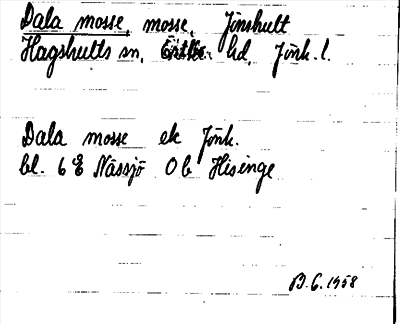 Dala mosse, mosse, Jönshult
Hagshults sn, Östbo hd, Jönk. l.
Dala mosse ek Jönk.
bl. 6 E Nässjö 0 b Hisinge
B.G. 1958